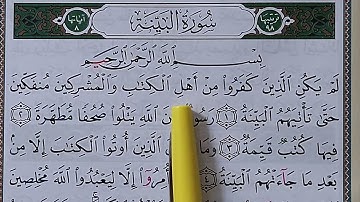 ترتيبها ٩٨ سُورَةُ الْبَيِّنَةِ آياتها ٨
بِسْمِ اللَّهِ الرَّحْمَٰنِ الرَّحِيمِ
لَمْ يَكُنِ الَّذِينَ كَفَرُوا مِنْ أَهْلِ الْكِتَابِ وَالْمُشْرِكِينَ مُنْفَكِّينَ
حَتَّى تَأْتِيَهُمُ الْبَيِّنَةُ ١ رَسُولٌ مِنَ اللَّهِ يَتْلُوا صُحُفًا مُطَهَّرَةً ٢
فِيهَا كُتُبٌ قَيِّمَةٌ ٣ وَمَا الَّذِينَ أُوتُوا الْكِتَابَ إِلَّا مِنْ
بَعْدِ مَا جَاءَتْهُمُ الْبَيِّنَةُ ٤ أُمِرُوا إِلَّا لِيَعْبُدُوا اللَّهَ مُخْلِصِينَ